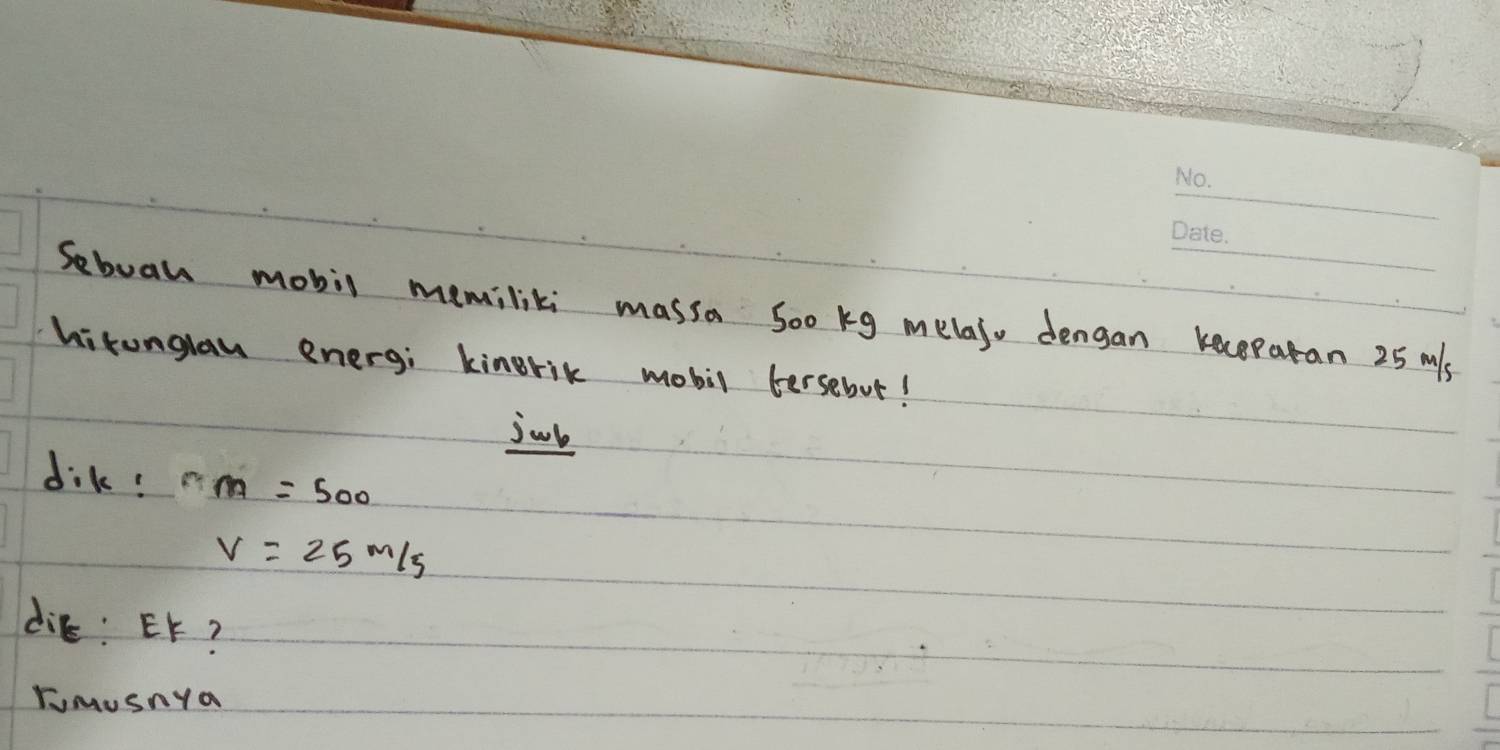 No.
Date.
Sebuah mobil memiliki massa 500 kg melaju dengan kecepatan 25 m/s
hitunglah energi kinetik mobil tersebut!
jwb
dik : m = 500
V = 25 m/s
dit : Ek ?
rumusnya